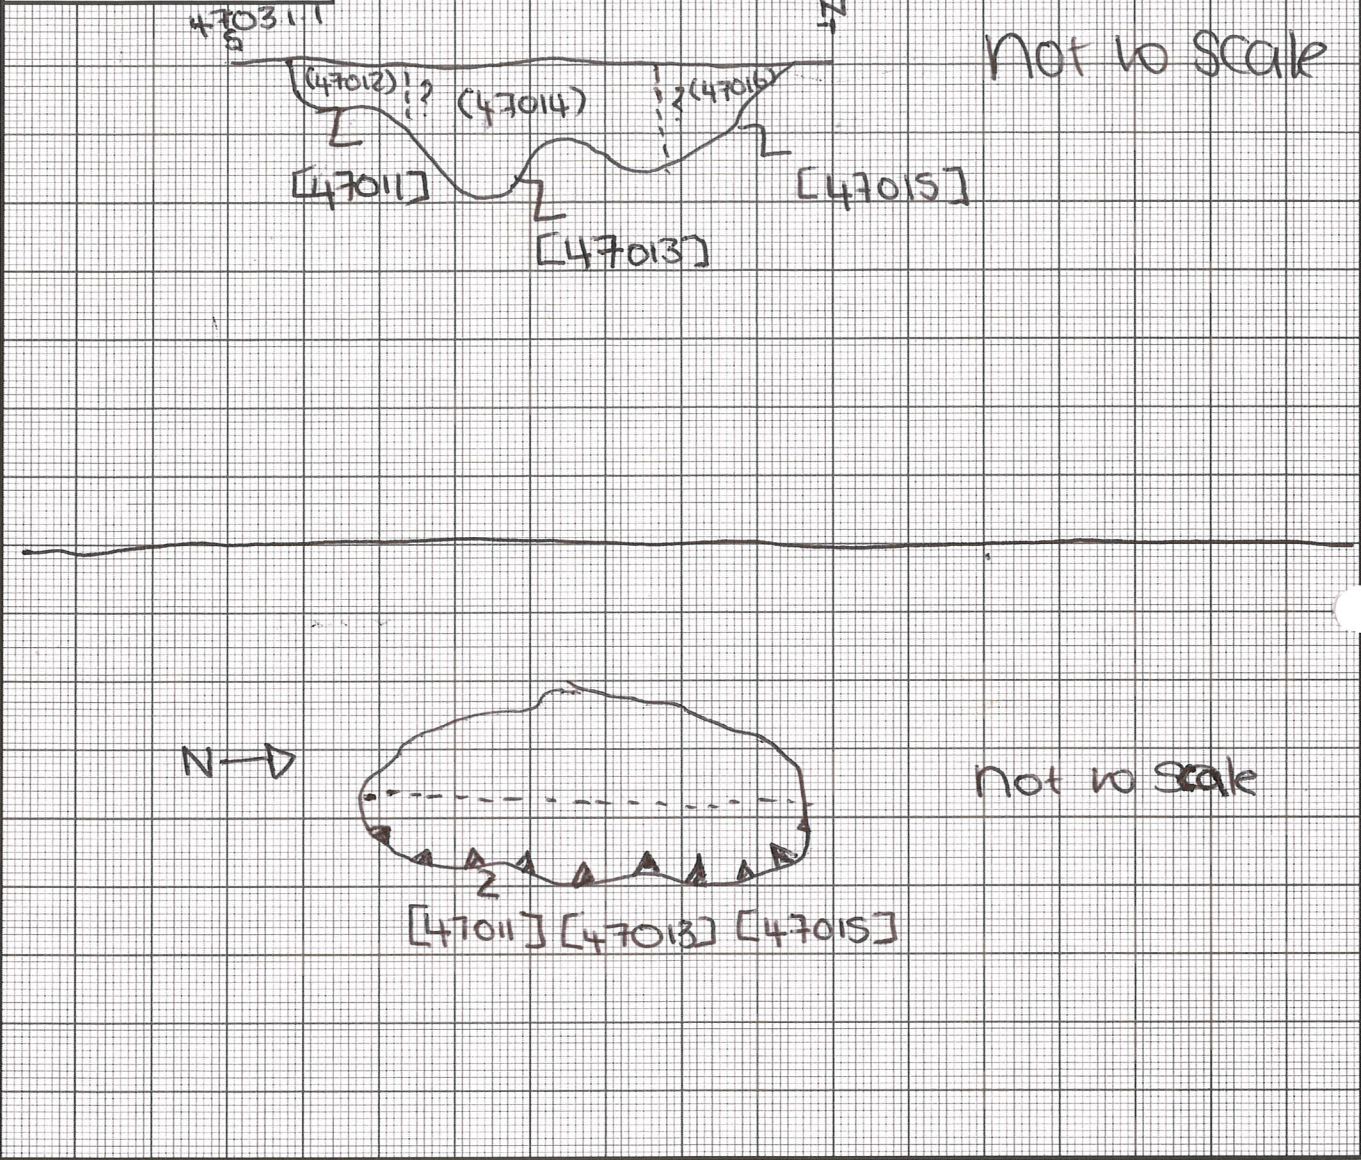 S
N
not to scale
(47012) ? (47014) ? (47016)
[47011]
[47015]
[47013]
N
not to scale
[47011] [47013] [47015]